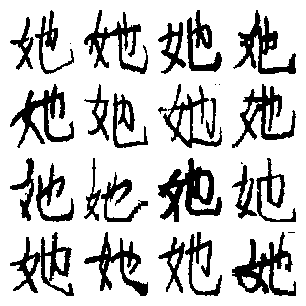 她她她她
她她她她
她她她她
她她她她